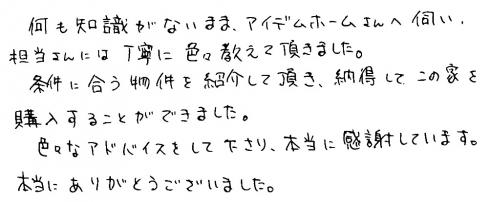 何も知識がないまま、アイデムホームさんへ伺い、
担当さんには丁寧に色々教えて頂きました。
条件に合う物件を紹介して頂き、納得してこの家を
購入することができました。
色々なアドバイスをして下さり、本当に感謝しています。
本当にありがとうございました。